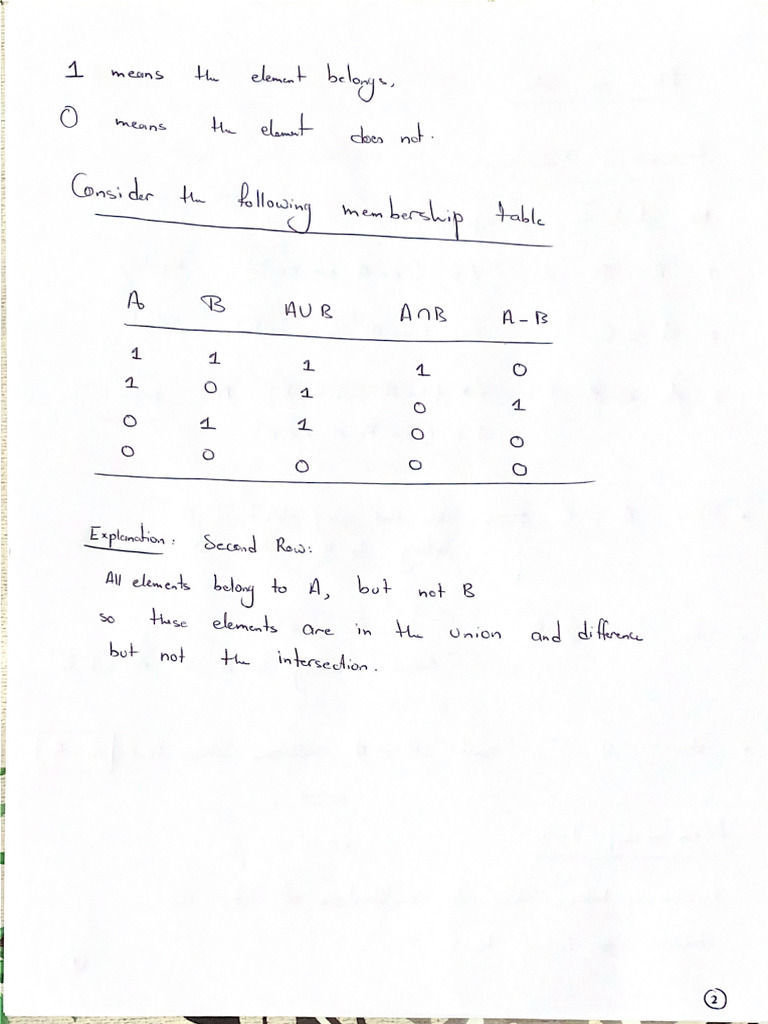 1 means the element belongs,
0 means the element does not.
Consider the following membership table
A B A∪B A∩B A-B
1 1 1 1 0
1 0 1 0 1
0 1 1 0 0
0 0 0 0 0
Explanation: Second Row:
All elements belong to A, but not B
so these elements are in the union and difference
but not the intersection.
2